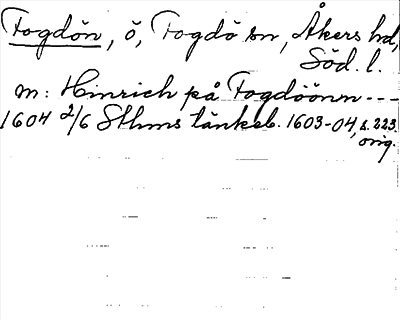 Fogdön, ö, Fogdö sn, Åkers hd,
Söd. l.
m: Hinrich på Fogdöönn ---
1604 2/6 Sthms tänkeb. 1603-04, s. 223.
orig.